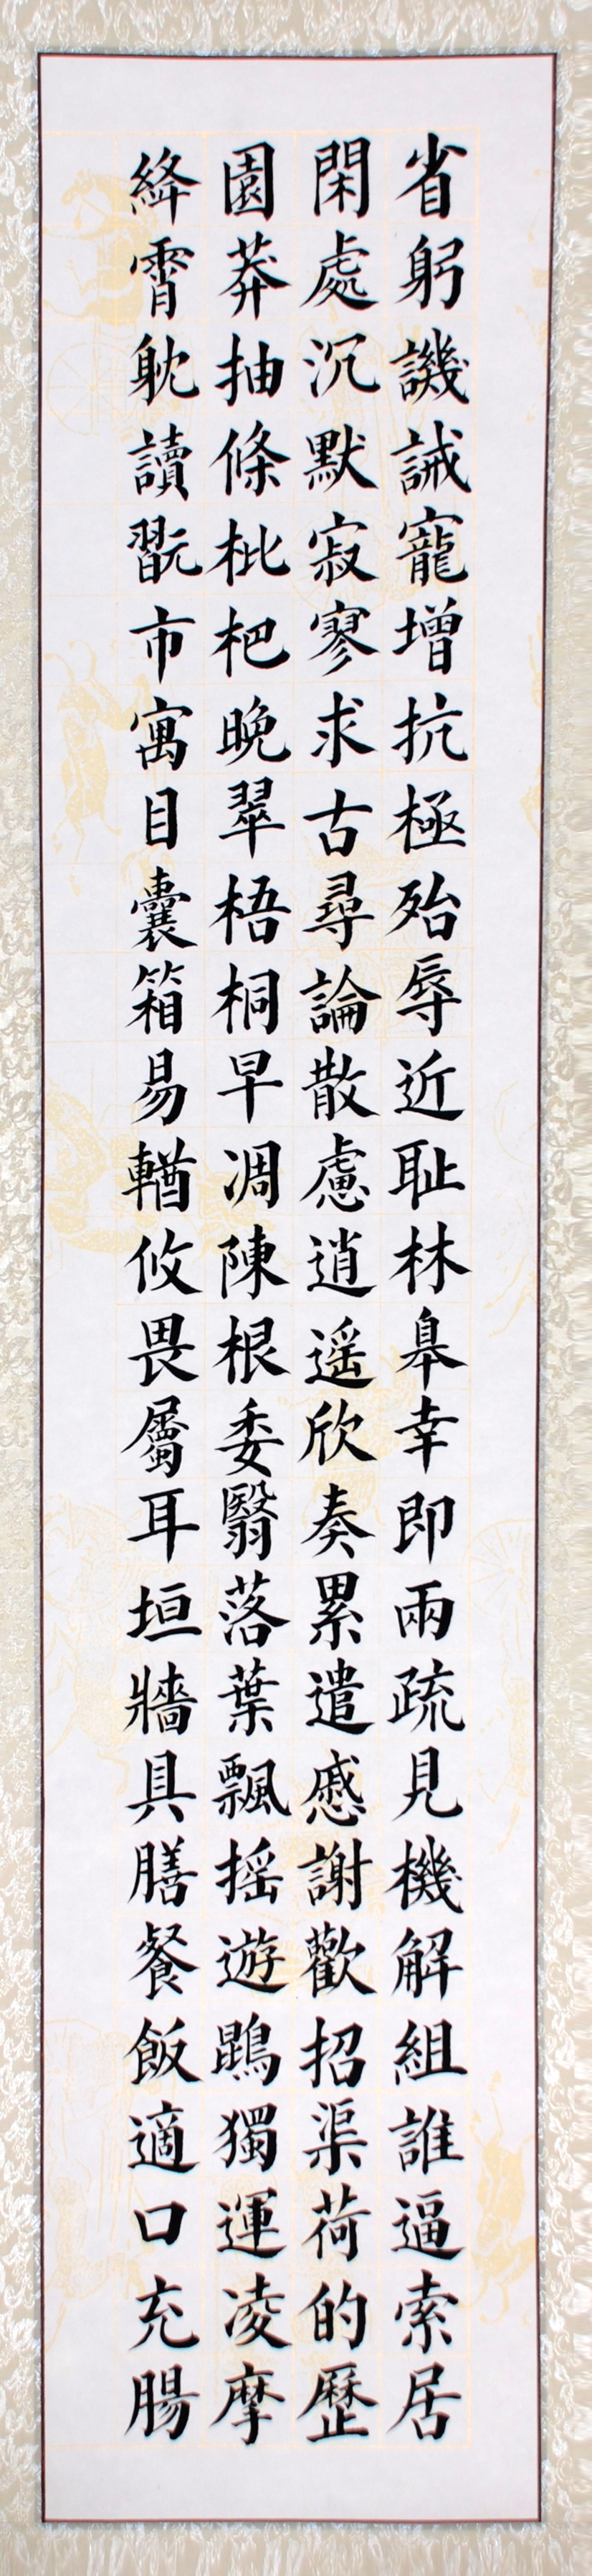 省躬譏誡寵增抗極殆辱近耻林皋幸即兩疏見機解組誰逼索居
閑處沉默寂寥求古尋論散慮逍遥欣奏累遣慼謝歡招渠荷的歷
園莽抽條枇杷晚翠梧桐早凋陳根委翳落葉飄摇遊鵾獨運凌摩
絳霄耽讀翫市寓目囊箱易輶攸畏屬耳垣牆具膳餐飯適口充腸